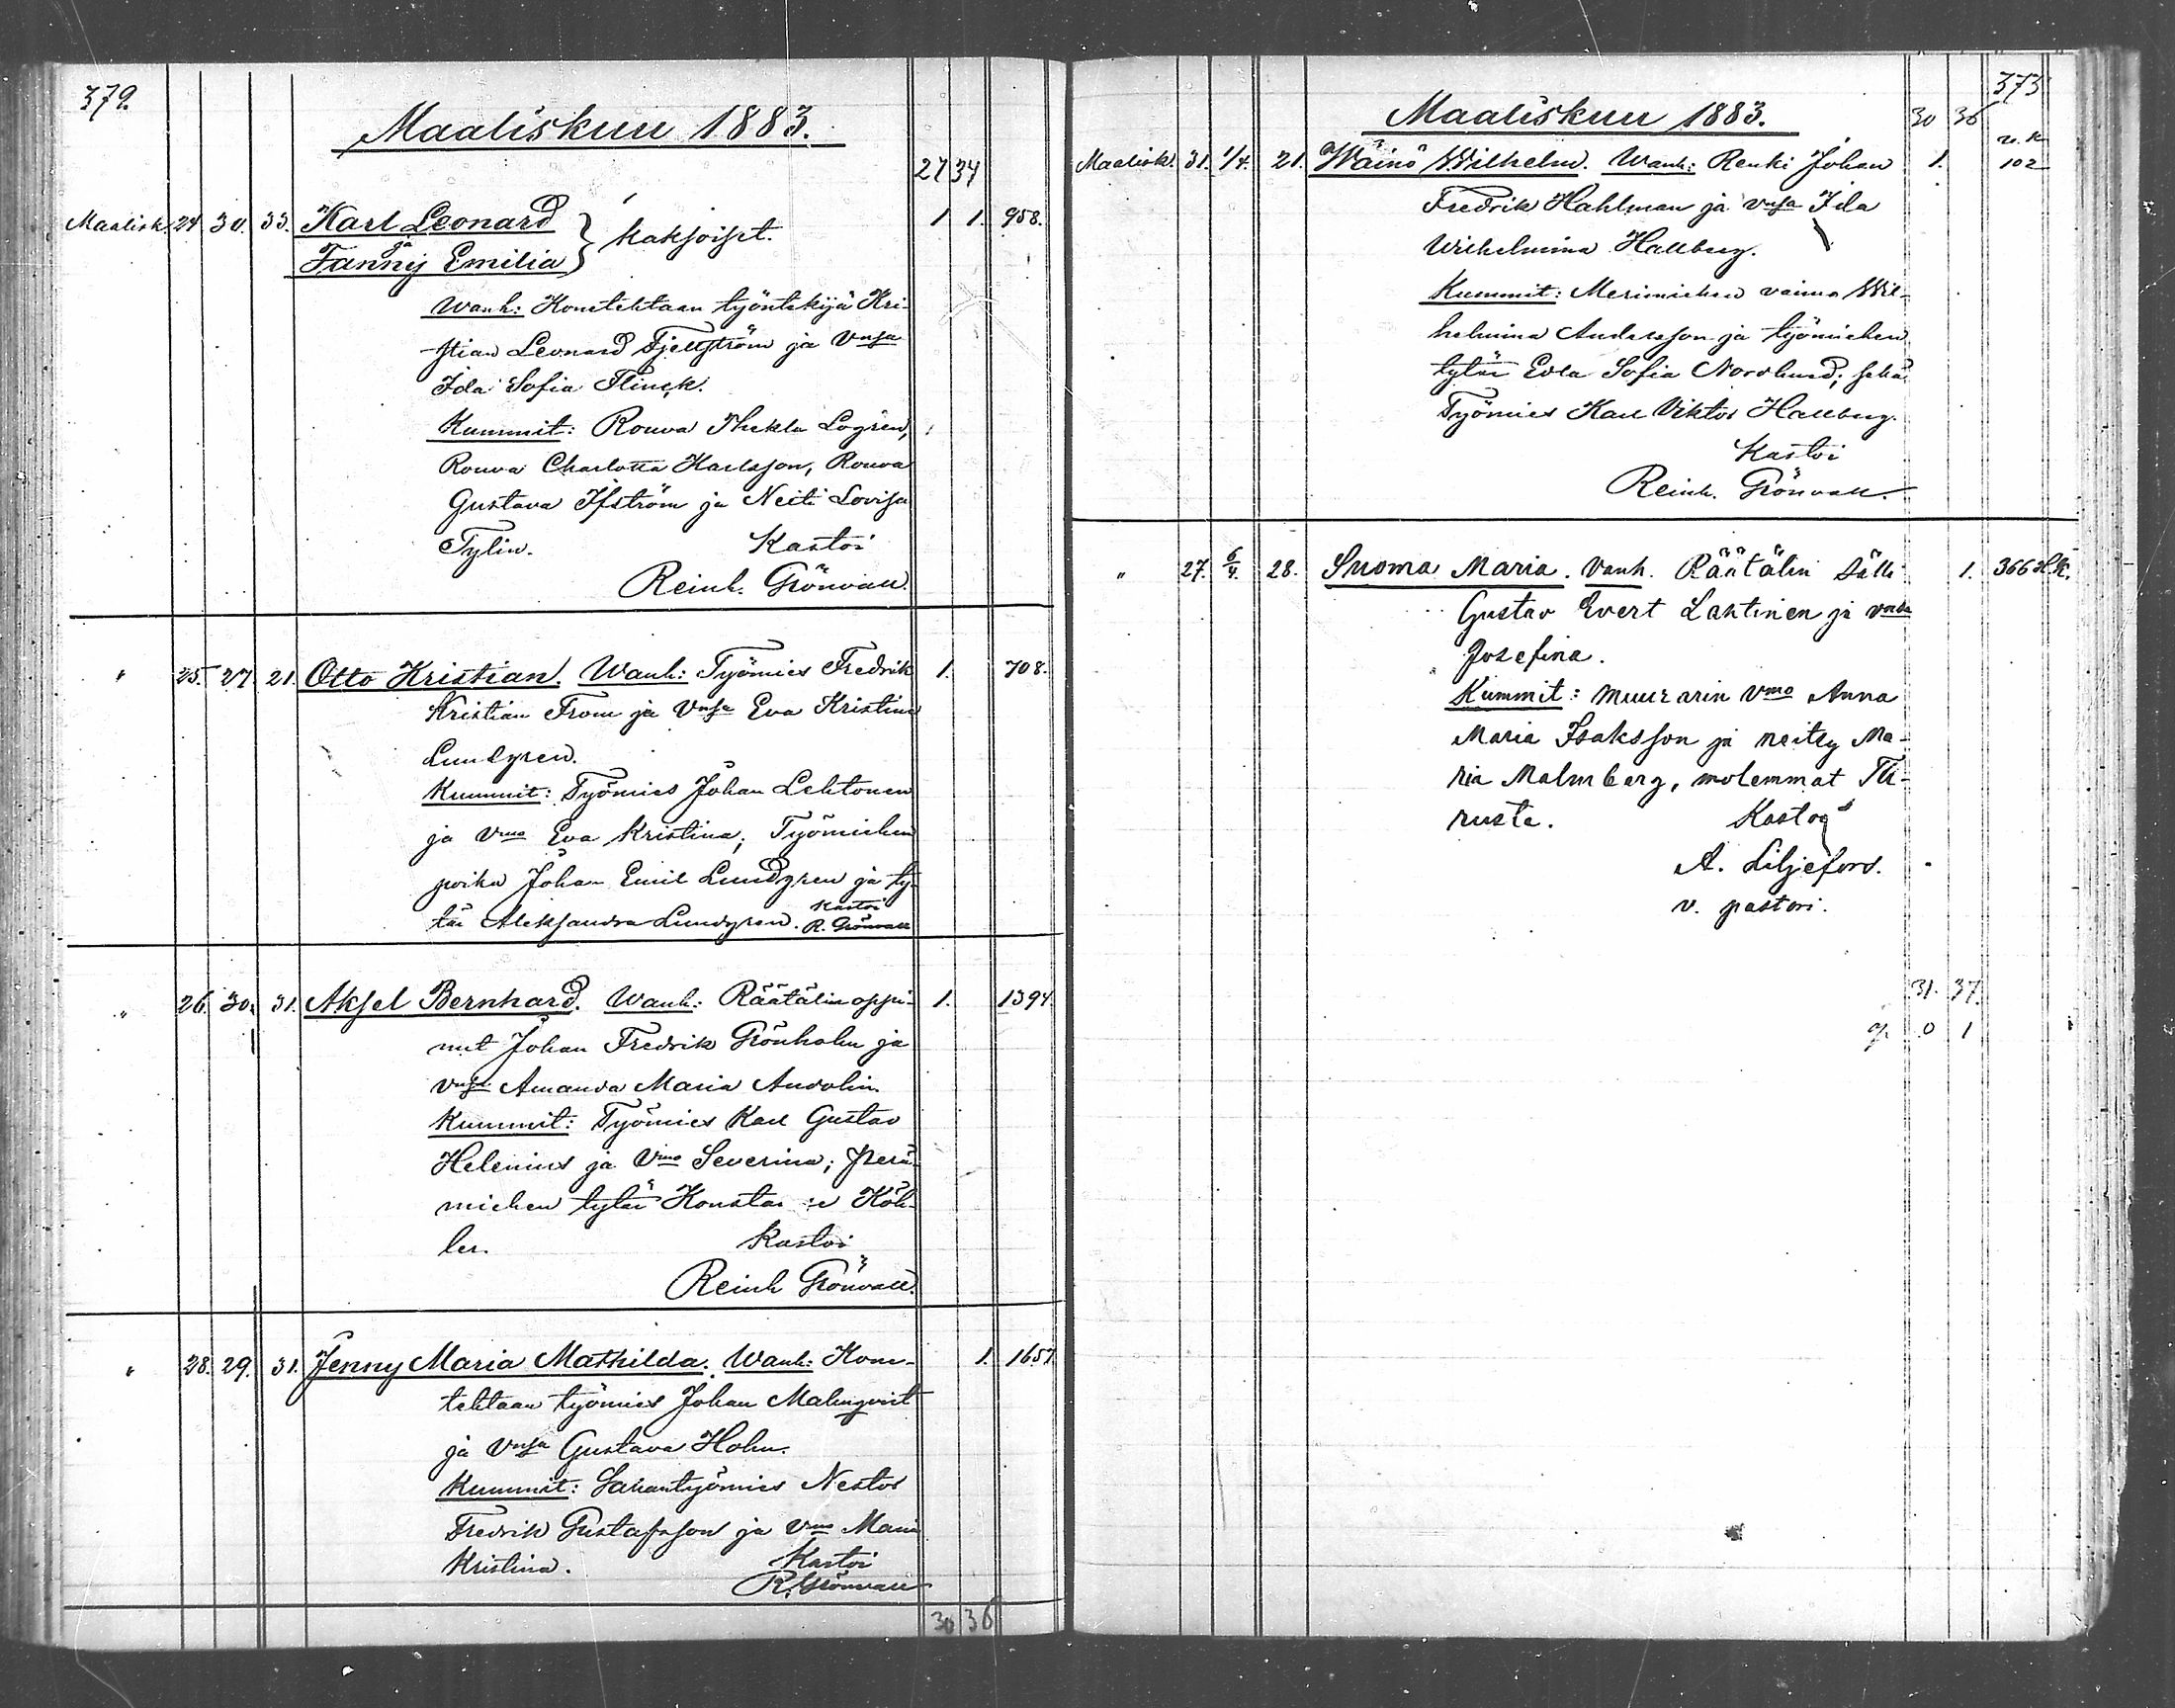 379.
Maaliskuu 1883.
27 34
Maalisk. 24 30. 33. Karl Leonard 1 1. 958.
ja } kaksoiset.
Fanny Emilia
Wanh: Konetehtaan työntekijä Kri-
stian Leonard Fjellström ja Vnsa
Ida Sofia Flinck.
Kummit: Rouva Thekla Logrén,
Rouva Charlotta Karlsson, Rouva
Gustava Ifström ja Neiti Lovisa
Tylin. Kastoi
Reinh. Grönvall.
" 25. 27. 21. Otto Kristian. Wanh: Työmies Fredrik 1. 708.
Kristian From ja Vnsa Eva Kristina
Lundgren.
Kummit: Työmies Johan Lehtonen
ja Vmo Eva Kristina; Työmiehen
poika Johan Emil Lundgren ja ty-
tär Aleksandra Lundgren. Kastoi
R. Grönvall
" 26. 30. 31. Aksel Bernhard. Wanh: Räätälin oppi- 1. 1394.
nut Johan Fredrik Grönholm ja
Vnsa Amanda Maria Andolin.
Kummit: Työmies Karl Gustav
Helenius ja Vmo Severina; Perä-
miehen tytär Konstan e Köh-
ler. Kastoi
Reinh Grönvall.
" 28. 29. 31. Jenny Maria Mathilda. Wanh: Kone- 1. 1657.
tehtaan työmies Johan Malmqvist
ja Vnsa Gustava Holm.
Kummit: Sahantyömies Nestor
Fredrik Gustafsson ja Vmo Maria
Kristina. Kastoi
R. Grönvall
30 36
373
Maaliskuu 1883. 30 36
u.k
Maalisk. 31. 1/4. 21. Wäinö Wilhelm. Wanh: Renki Johan 1. 102
Fredrik Hahlman ja vnsa Ida
Wilhelmina Hallberg.
Kummit: Merimiehen vaimo Wil-
helmina Andersson ja työmiehen
tytär Edla Sofia Nordlund; sekä
Työmies Karl Viktor Hallberg.
Kastoi
Reinh. Grönvall.
" 27. 6/4. 28. Suoma Maria. Vanh. Räätälin sälli 1. 366
Gustav Evert Lahtinen ja
Josefina.
Kummit: Muurarin Vmo Anna
Maria Isaksson ja neitsy Ma-
ria Malmberg, molemmat Tu-
rusta. Kastoi
A. Liljefors.
v. pastori.
31. 37.
0 1